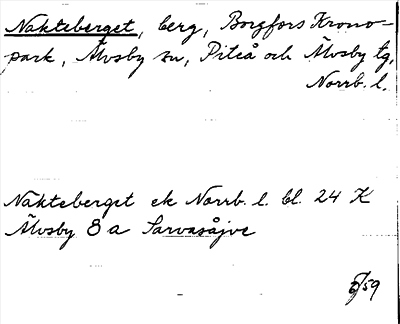 Näkteberget, berg, Borgfors Krono-
park, Älvsby sn, Piteå och Älvsby tg,
Norrb. l.
Näkteberget ek Norrb. l. bl. 24 K
Älvsby 8 a Sarvasåjve
/59